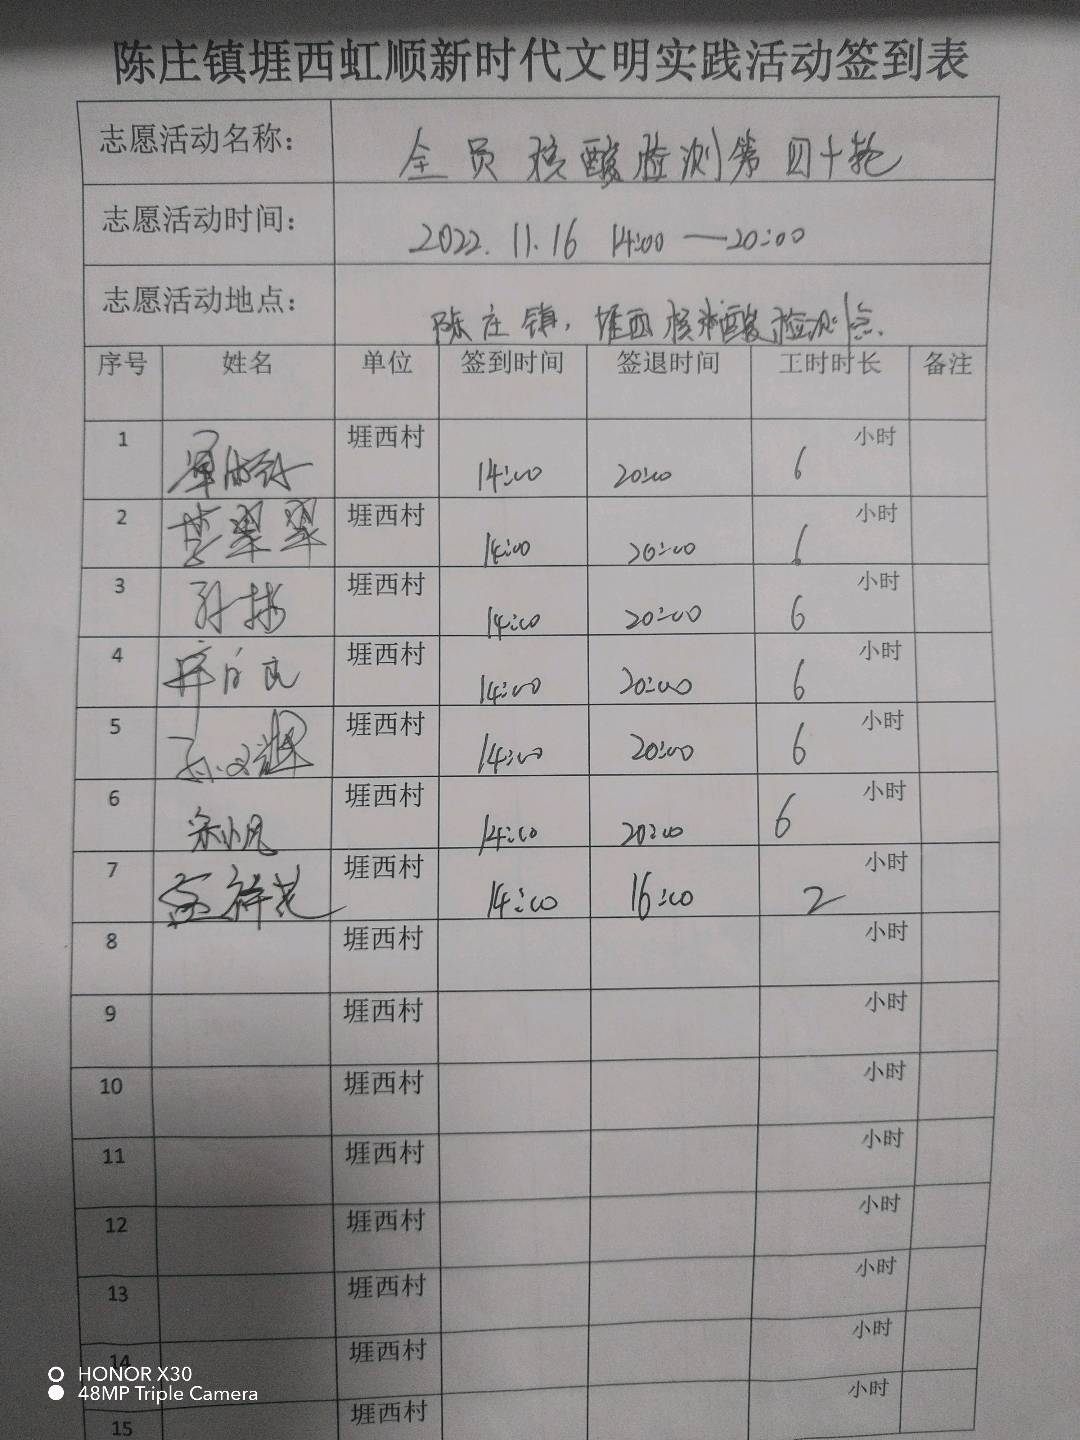 陈庄镇堐西虹顺新时代文明实践活动签到表
志愿活动名称： 全员核酸检测第四十轮
志愿活动时间： 2022.11.16 14:00—20:00
志愿活动地点： 陈庄镇，堐西核酸检测点.
序号 姓名 单位 签到时间 签退时间 工时时长 备注
1 堐西村 14:00 20:00 6 小时
2 翠翠 堐西村 14:00 20:00 6 小时
3 孙 堐西村 14:00 20:00 6 小时
4 堐西村 14:00 20:00 6 小时
5 孙文 堐西村 14:00 20:00 6 小时
6 宋小凤 堐西村 14:00 20:00 6 小时
7 祥花 堐西村 14:00 16:00 2 小时
8 堐西村 小时
9 堐西村 小时
10 堐西村 小时
11 堐西村 小时
12 堐西村 小时
13 堐西村 小时
14 堐西村 小时
15 堐西村 小时
HONOR X30
48MP Triple Camera